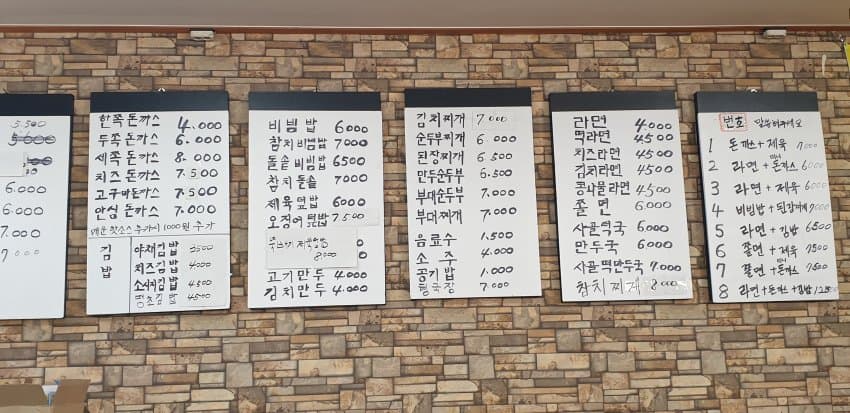 5.500
6.000
6.000
7.000
7.000
한쪽 돈까스 4.000
두쪽 돈까스 6.000
세쪽 돈까스 8.000
치즈 돈까스 7.500
고구마돈까스 7.500
안심 돈까스 7.000
매운 핫소스 추가시 1000원 추가
김밥
야채김밥 3500
치즈김밥 4000
소세지김밥 4500
땡초김밥 4500
비빔밥 6000
참치 비빔밥 7000
돌솥 비빔밥 6500
참치 돌솥 7000
제육 덮밥 6000
오징어 덮밥 7500
8000
고기만두 4.000
김치만두 4.000
김치찌개 7.000
순두부찌개 6.000
된장찌개 6.500
만두순두부 6.500
부대순두부 7.000
부대찌개 7.000
음료수 1.500
소주 4.000
공기밥 1.000
청국장 7.000
라면 4.000
떡라면 4500
치즈라면 4500
김치라면 4500
콩나물라면 4500
쫄면 6000
사골떡국 6000
만두국 6000
사골떡만두국 7.000
참치찌개 8.000
번호 말씀해주세요
1 돈까스+제육 7000
2 라면+돈까스 6000
3 라면+제육 6000
4 비빔밥+된장찌개 7000
5 라면+김밥 6500
6 쫄면+제육 7500
7 쫄면+돈까스 7500
8 라면+돈까스+김밥